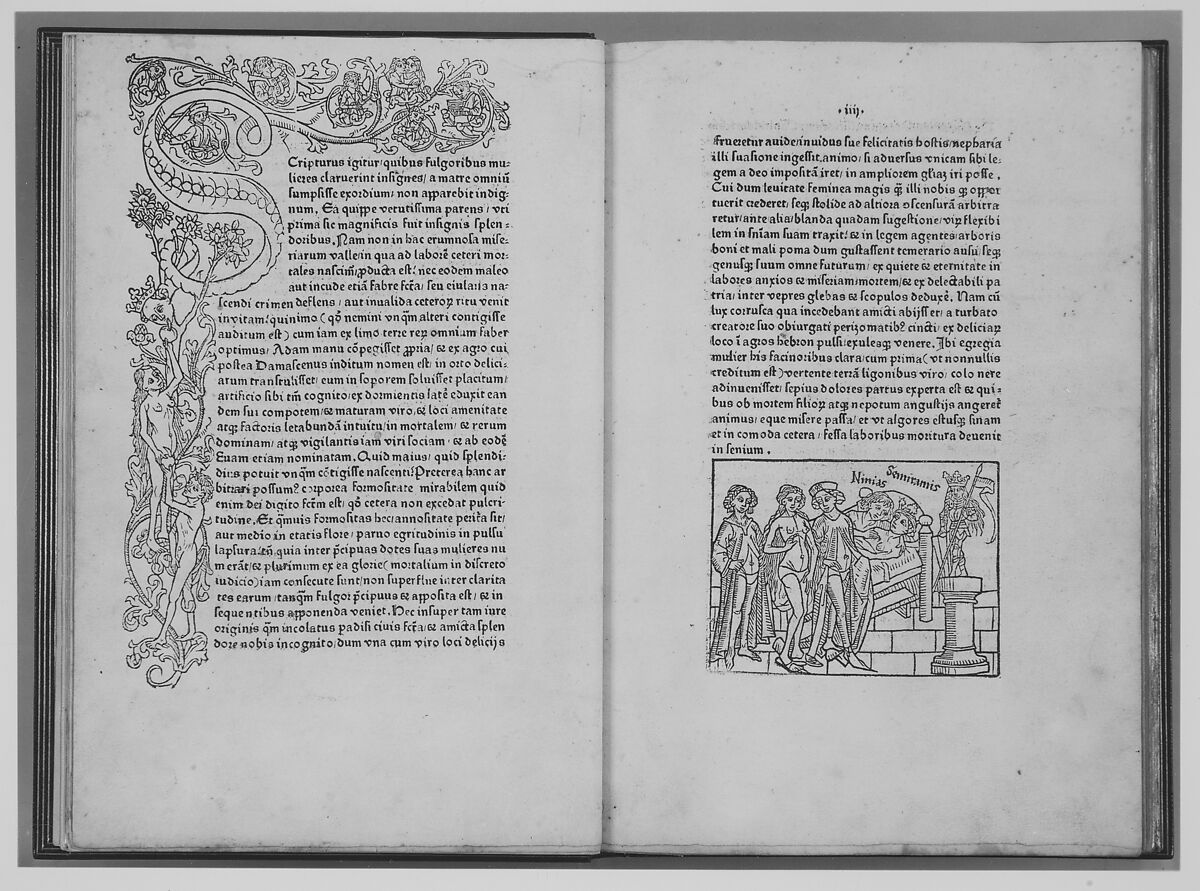 Scripturus igitur/quibus fulgoribus mu⸗
lieres claruerint insignes/a matre omniũ
sumpsisse exordium/non apparebit indig⸗
num. Ea quippe vetutissima parens/vti
prima sic magnificis fuit insignis splen⸗
doribus. Nam non in hac erumnosa mise⸗
riarum valle/in qua ad laborẽ ceteri mor⸗
tales nascim̃/ꝓducta est/nec eodem maleo
aut incude etiã fabrefcta/seu eiulans na⸗
scendi crimen deflens/aut inualida ceteroꝝ ritu venit
in vitam/quinimo (qđ nemini vnꝗ̃m alteri contigisse
auditum est) cum iam ex limo terre reꝝ omnium faber
optimus/Adam manu cõpegisset ꝓpria/& ex agro cui
postea Damascenus inditum nomen est/in orto delici⸗
arum transtulisset/eum in soporem soluisset placitum/
artificio sibi tm̃ cognito/ex dormientis latẽ eduxit ean
dem sui compotem/& maturam viro/& loci amenitate
atꝗ factoris letabundã intuitu/inmortalem/& rerum
dominam/atꝗ vigilantis iam viri sociam/& ab eodẽ
Euam etiam nominatam. Quid maius/quid splendi⸗
dius potuit vnꝗ̃m cõtigisse nascenti? Preterea hanc ar
bitrari possumꝰ corporea formositate mirabilem quid
enim dei digito fctm est/qđ cetera non excedat pulcri⸗
tudine. Et ꝗ̃muis formositas hec/annositate perita sit/
aut medio in etatis flore/paruo egritudinis in pulsu
lapsura.tñ quia inter p̃cipuas dotes suas mulieres nu
merãt/& plurimum ex ea glorie (mortalium indiscreto
iudicio) iam consecute sunt/non superflue inter clarita
tes earum/tanꝗ̃m fulgor p̃cipuus & apposita est/& in
sequentibus apponenda veniet. Hec insuper tam iure
originis ꝗ̃m incolatus paradisi ciuis fcta/& amicta splen
dore nobis incognito/dum vna cum viro loci delicijs
·iiij·
frueretur auide/inuidus sue felicitatis hostis/nepharia
illi suasione ingessit.animo/si aduersus vnicam sibi le⸗
gem a deo impositã iret/in ampliorem gl̃iaʒ iri posse.
Cui dum leuitate feminea magis ꝗ̃ illi nobis ꝗꝫ oppor
tuerit crederet/seꝗ stolide ad altiora ꝯscensurã arbitra
retur/ante alia/blanda quadam sugestione/viꝝ flexibi
lem in sñiam suam traxit/& in legem agentes/arboris
boni et mali poma dum gustassent temerario ausu/seꝗ
genusꝗ suum omne futurum/ex quiete & eternitate in
labores anxios & miseriam/mortem/& ex delectabili pa
tria/inter vepres glebas & scopulos deduxẽ. Nam cũ
lux corrusca qua incedebant amicti abijsset/a turbato
creatore suo obiurgati perizomatibꝰ cincti/ex deliciaꝝ
loco ĩ agros hebron pulsi/exulesꝗ venere. Ibi egregia
mulier his facinoribus clara/cum prima (vt nonnullis
creditum est) vertente terrã ligonibus viro/colo nere
adinuenisset/sepius dolores partus experta est & qui⸗
bus ob mortem filioꝝ atꝗ nepotum angustijs angeret̃
animus/eque misere passa/et vt algores estusꝗ sinam
et incomoda cetera/fessa laboribus moritura deuenit
in senium.
Ninias Semiramis